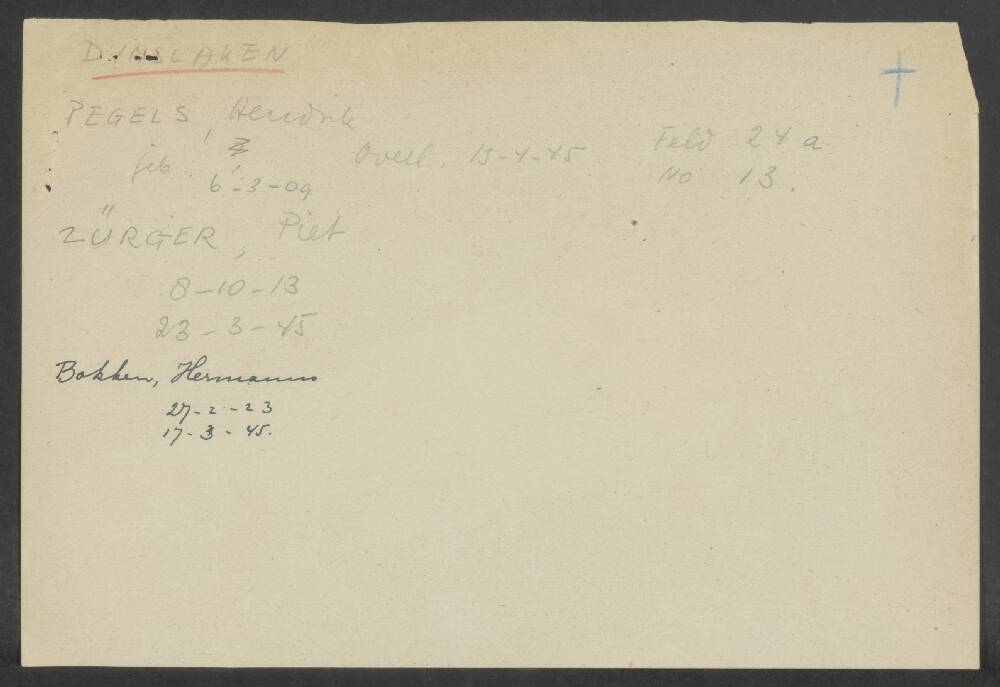 DINSLAKEN
PEGELS, Hendrik
geb. 6-3-09 Overl. 15-4-45 Feld 24a
No 13.
ZÜRGER, Piet
8-10-13
23-3-45
Bakken, Hermanus
27-2-23
17-3-45.